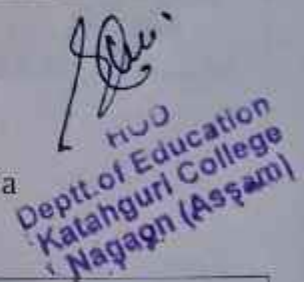 HOD
a
Deptt.of Education
Katahguri College
Nagaon (Assam)